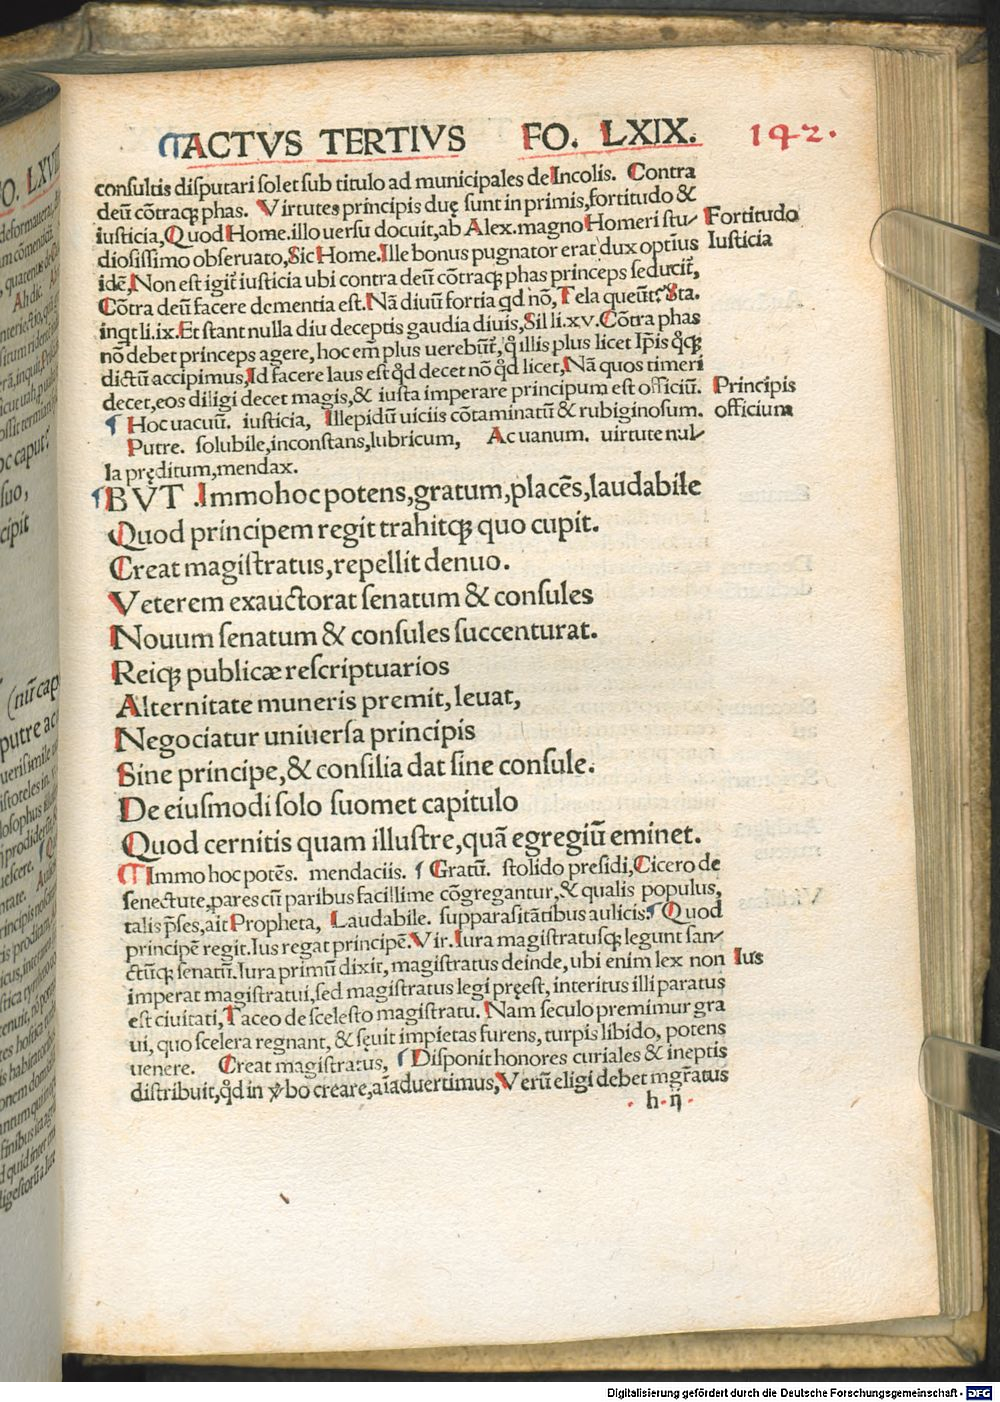 ACTVS TERTIVS FO. LXIX. 142.
consultis disputari solet sub titulo ad municipales de Incolis. Contra
deū cōtraqꝫ phas. Virtutes principis duę sunt in primis, fortitudo &
iusticia, Quod Home. illo uersu docuit, ab Alex. magno Homeri stu-
Fortitudo
diosissimo obseruato, Sic Home. Ille bonus pugnator erat dux optiūs
Iusticia
idē, Non est igit̄ iusticia ubi contra deū cōtraqꝫ phas princeps seducit,
Cōtra deū facere dementia est. Nā diuū fortia qd nō, Tela queūt? Sta.
inqt li. ix. Et stant nulla diu deceptis gaudia diuis, Sil li. xv. Cōtra phas
nō debet princeps agere, hoc em̄ plus uerebūt̄, q̄ illis plus licet Ip̄is q̄cqꝫ
dictū accipimus, Id facere laus est q̄d decet nō q̄d licet, Nā quos timeri
decet, eos diligi decet magis, & iusta imperare principum est officiū.
Principis
officium
¶ Hoc uacuū. iusticia, Illepidū uiciis cōtaminatū & rubiginosum.
Putre. solubile, inconstans, lubricum, Ac uanum. uirtute nul-
la pręditum, mendax.
¶ BVT .Immo hoc potens, gratum, placēs, laudabile
Quod principem regit trahitqꝫ quo cupit.
Creat magistratus, repellit denuo.
Veterem exauctorat senatum & consules
Nouum senatum & consules succenturat.
Reiqꝫ publicæ rescriptuarios
Alternitate muneris premit, leuat,
Negociatur uniuersa principis
Sine principe, & consilia dat sine consule.
De eiusmodi solo suomet capitulo
Quod cernitis quam illustre, quā egregiū eminet.
Immo hoc potēs. mendaciis. ¶ Gratū. stolido presidi, Cicero de
senectute, pares cū paribus facillime cōgregantur, & qualis populus,
talis p̄ses, ait Propheta, Laudabile. supparasitātibus aulicis. ¶ Quod
principē regit. Ius regat principē. Vir. Iura magistratusqꝫ legunt san-
ctūqꝫ senatū. Iura primū dixit, magistratus deinde, ubi enim lex non
Ius
imperat magistratui, sed magistratus legi pręest, interitus illi paratus
est ciuitati, Taceo de scelesto magistratu. Nam seculo premimur gra
ui, quo scelera regnant, & sęuit impietas furens, turpis libido, potens
uenere. Creat magistratus, ¶ Disponit honores curiales & ineptis
distribuit, q̄d in v̄bo creare, aīaduertimus, Verū eligi debet mgr̄atus
h ij
Digitalisierung gefördert durch die Deutsche Forschungsgemeinschaft - DFG